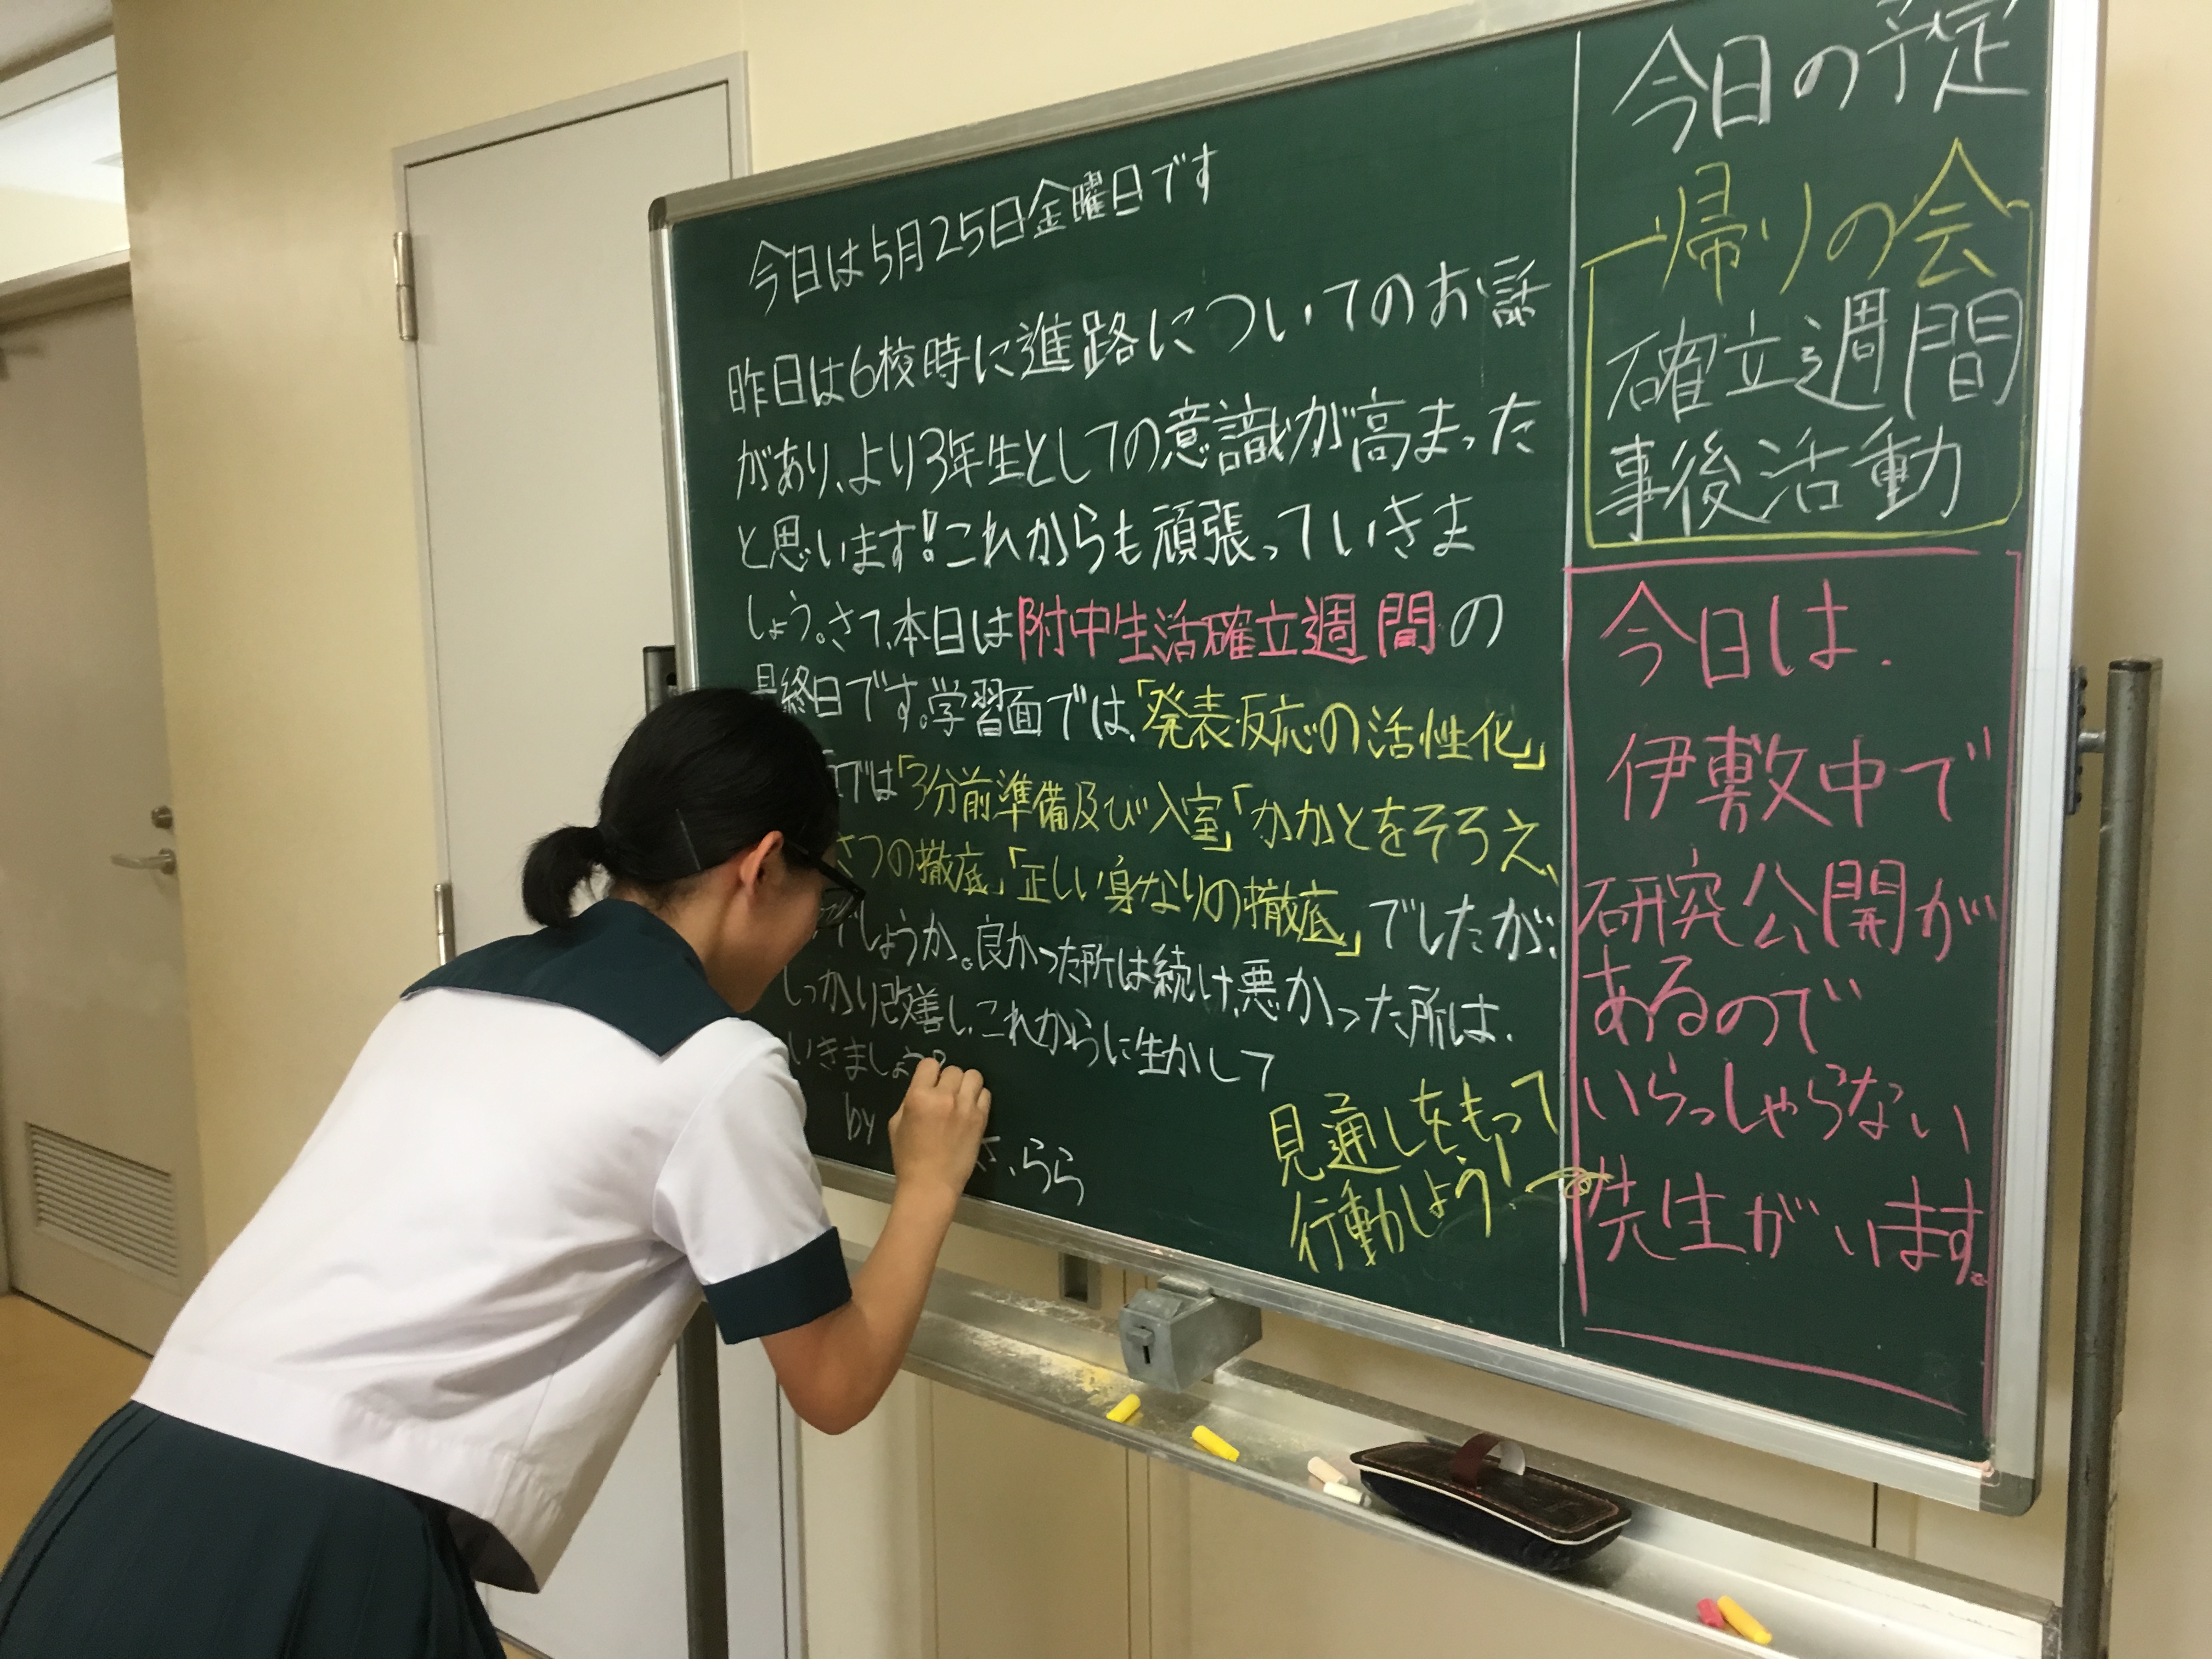 今日は5月25日金曜日です
昨日は6校時に進路についてのお話
があり、より3年生としての意識が高まった
と思います!これからも頑張っていきま
しょう。さて、本日は附中生活確立週間の
最終日です。学習面では、「発表・反応の活性化」
では「3分前準備及び入室」「かかとをそろえ、
さつの徹底」「正しい身なりの徹底」でしたが、
でしょうか。良かった所は続け、悪かった所は、
しっかり改善し、これからに生かして
いきましょう
by
さ、らら
見通しをもって
行動しよう!
今日の予定
帰りの会
確立週間
事後活動
今日は、
伊敷中で
研究公開が
あるので
いらっしゃらない
先生がいます。